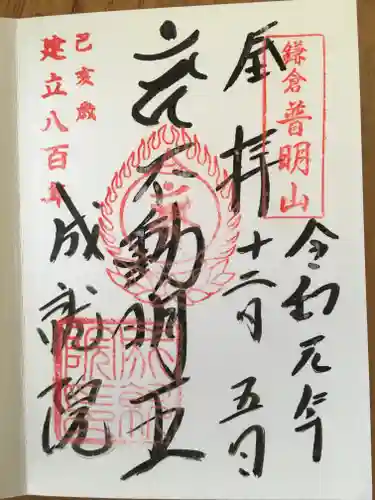 鎌倉 普明山
令和元年
奉拝 十二月 五日
不動明王
成就院
己亥歳
建立八百年